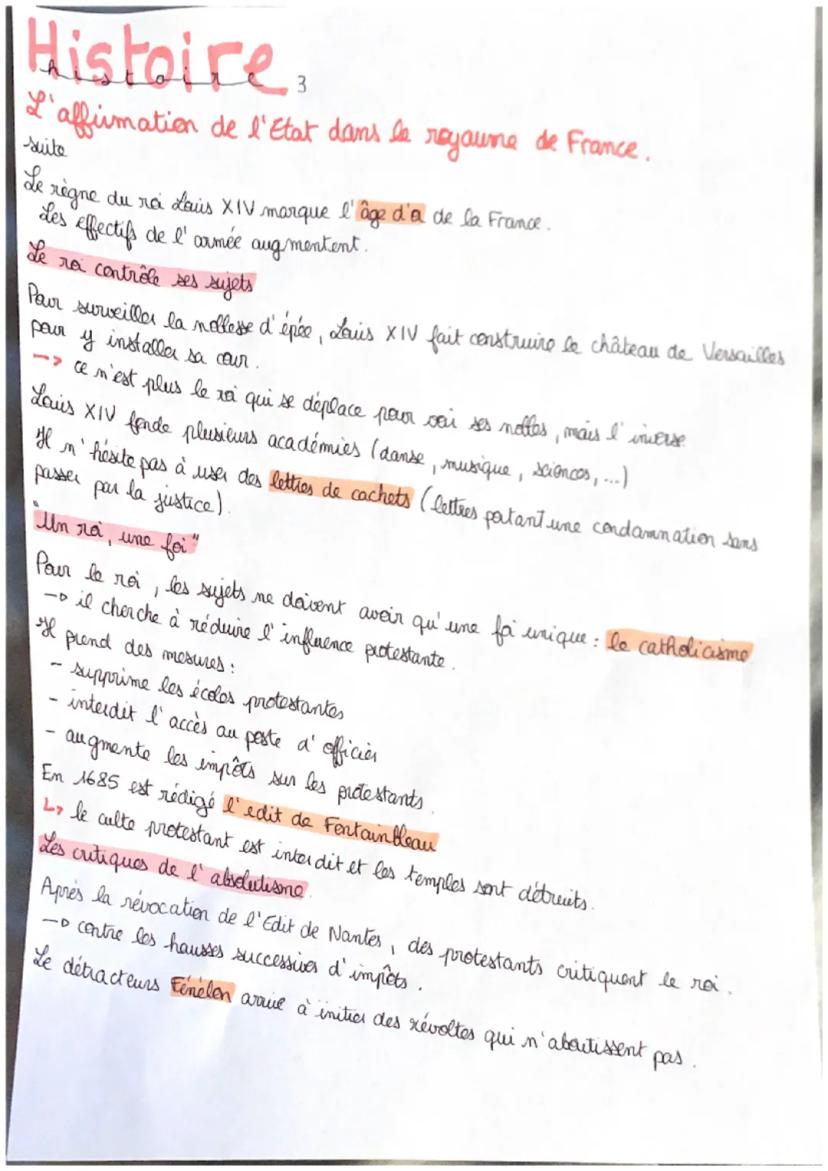 Histoire
histoire 3
L'affirmation de l'Etat dans le royaume de France.
suite
Le règne du roi Louis XIV marque l'âge d'or de la France.
Les effectifs de l'armée augmentent.
Le roi contrôle ses sujets
Pour surveiller la noblesse d'épée, Louis XIV fait construire le château de Versailles
pour y installer sa cour.
-> ce n'est plus le roi qui se déplace pour voir ses nobles, mais l'inverse
Louis XIV fonde plusieurs académies (danse, musique, sciences, ...)
Il n'hésite pas à user des lettres de cachets (lettres portant une condamnation sans
passer par la justice).
"Un roi, une foi"
Pour le roi, les sujets ne doivent avoir qu'une foi unique : le catholicisme
-> il cherche à réduire l'influence protestante.
Il prend des mesures :
- supprime les écoles protestantes
- interdit l'accès au poste d'officier
- augmente les impôts sur les protestants.
En 1685 est rédigé l'edit de Fontainbleau
↳ le culte protestant est interdit et les temples sont détruits.
Les critiques de l'absolutisme.
Après la révocation de l'Edit de Nantes, des protestants critiquent le roi.
-> contre les hausses successives d'impôts.
Le détracteurs Fénélon arrive à initier des révoltes qui n'aboutissent pas.